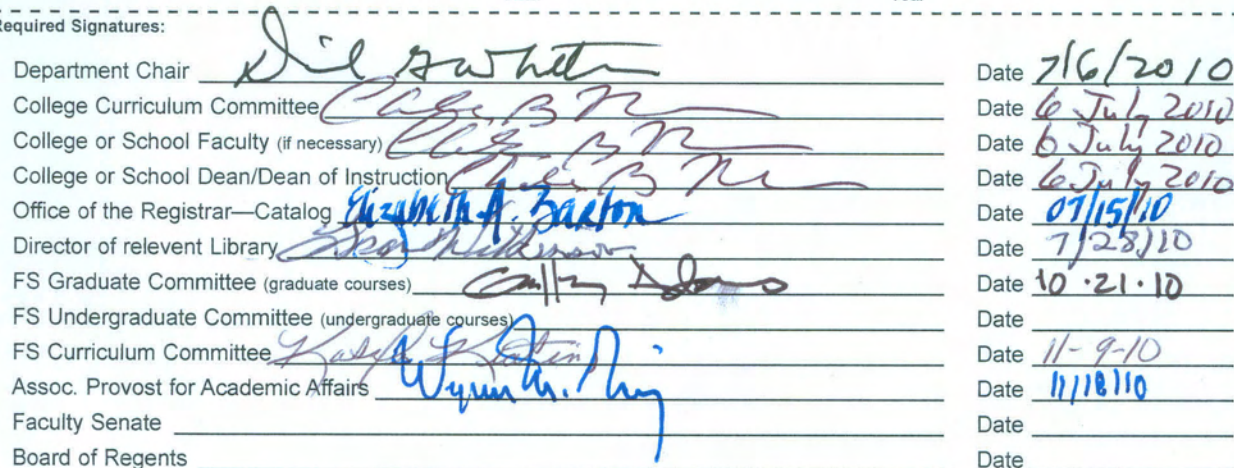 Required Signatures:
Department Chair Date 7/6/2010
College Curriculum Committee Date 6 July 2010
College or School Faculty (if necessary) Date 6 July 2010
College or School Dean/Dean of Instruction Date 6 July 2010
Office of the Registrar—Catalog Elizabeth A. Barton Date 07/15/10
Director of relevent Library Date 7/28/10
FS Graduate Committee (graduate courses) Date 10·21·10
FS Undergraduate Committee (undergraduate courses) Date
FS Curriculum Committee Date 11-9-10
Assoc. Provost for Academic Affairs Date 11/18/10
Faculty Senate Date
Board of Regents Date